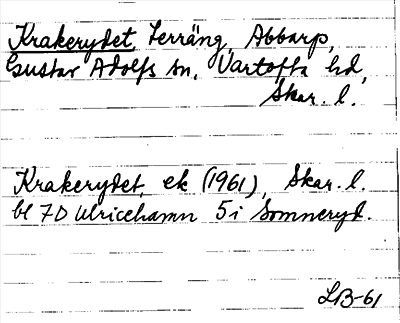 Krakerydet, Terräng, Abbarp,
Gustav Adolfs sn, Vartofta hd,
Skar. l.
Krakerydet, ek (1961), Skar. l.
bl 7D Ulricehamn 5i Somneryd.
LB-61